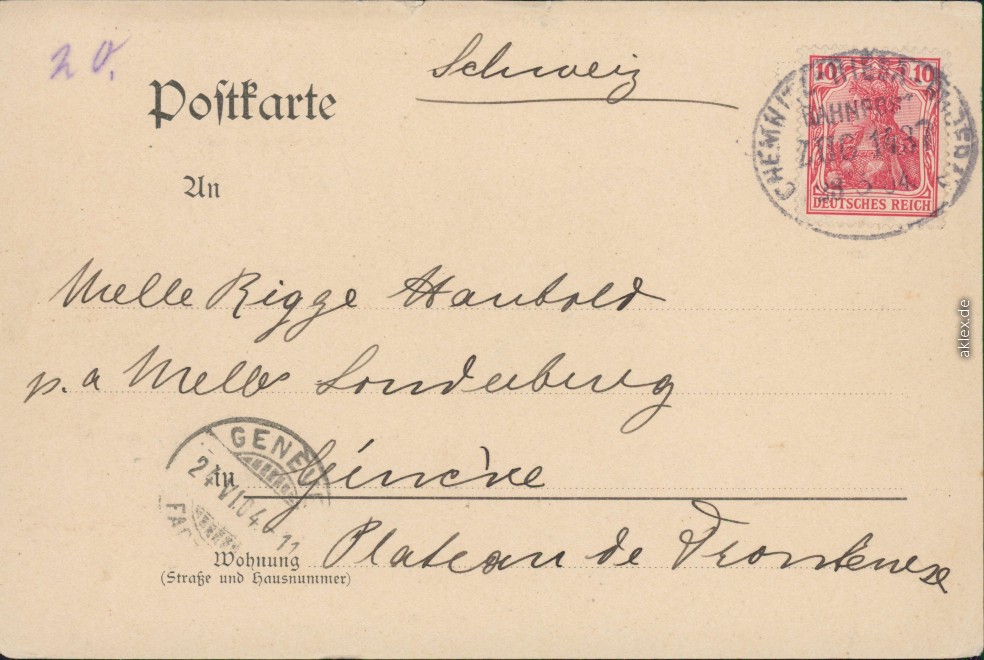 20.
Schweiz
Postkarte
10 10
DEUTSCHES REICH
CHEMNITZ RIESA
BAHNPOST
ZUG 1437
An
Melle Rigge Haubold
p. a Melles Sonderburg
GENÈVE
24 VI 04 11
FAC
in Genève
Wohnung
(Straße und Hausnummer)
Plateau de Frontenexe
aklex.de